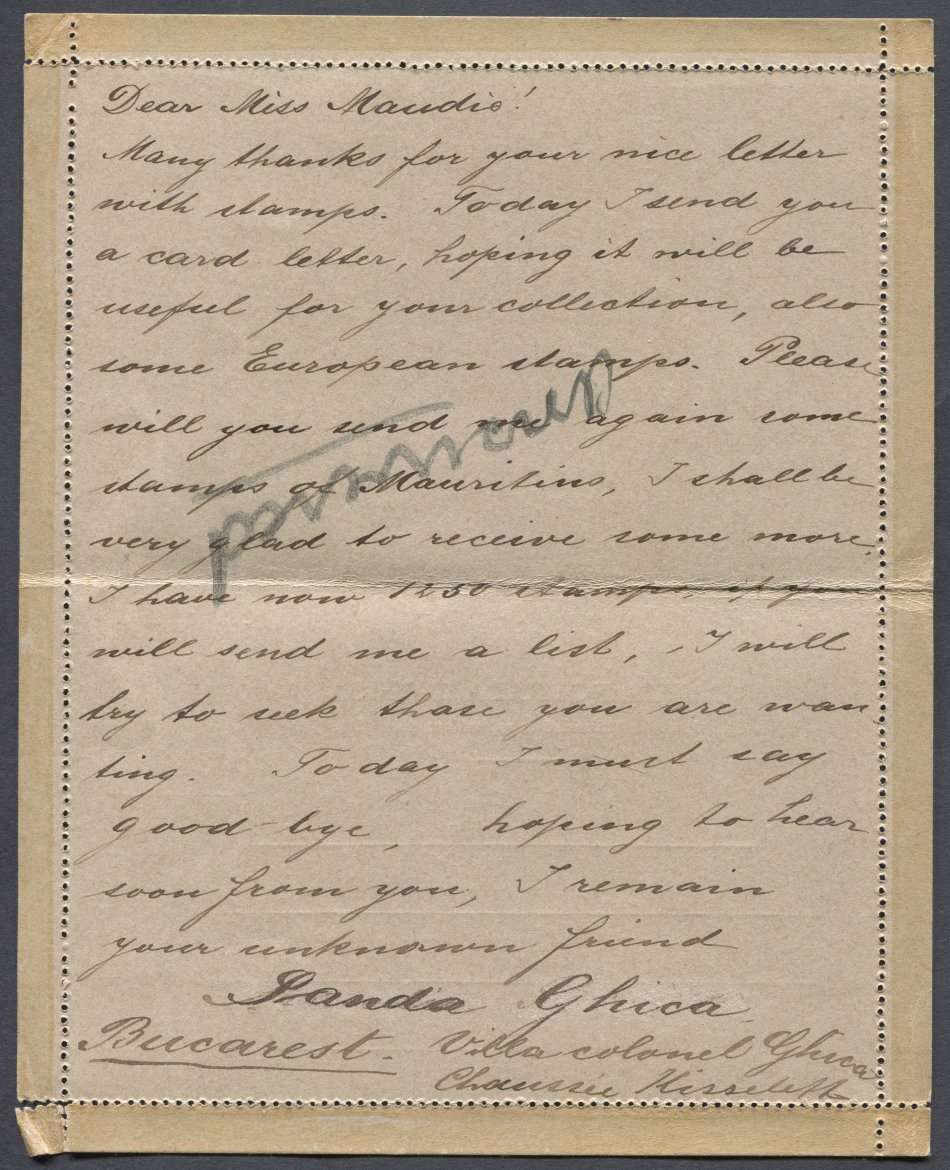 Dear Miss Maudie!
Many thanks for your nice letter
with stamps. Today I send you
a card letter, hoping it will be
useful for your collection, also
some European stamps. Please
will you send me again some
stamps of Mauritius, I shall be
very glad to receive some more.
I have now 1250 stamps, if you
will send me a list, I will
try to seek those you are wan
ting. Today I must say
good-bye, hoping to hear
soon from you, I remain
your unknown friend
Ghica
Bucarest. Villa colonel Ghica
Chaussée Kisseleff